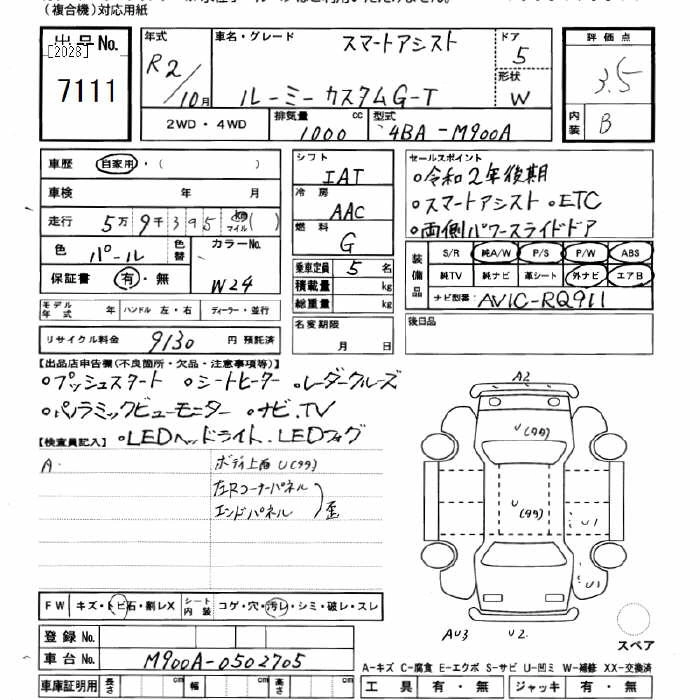 (複合機)対応用紙
出品No.
[2028]
7111
年式
R2/10月
車名・グレード
スマートアシスト
ルーミーカスタムG-T
ドア
5
形状
W
2WD・4WD
排気量
1000 cc
型式
4BA-M900A
評価点
3.5
内装
B
車歴 自家用・( )
車検 年 月
走行 5万9千395km マイル ( )
色 パール 色替
カラーNo.
W24
保証書 有・無
モデル年式 年 ハンドル 左・右 ディーラー・並行
リサイクル料金 9130 円 預託済
シフト
IAT
冷房
AAC
燃料
G
乗車定員 5 名
積載量 kg
総重量 kg
名変期限
月 日
セールスポイント
○令和2年後期
○スマートアシスト ○ETC
○両側パワースライドドア
装備品
S/R 純A/W P/S P/W ABS
純TV 純ナビ 革シート 外ナビ エアB
ナビ型番: AVIC-RQ911
後日品
【出品店申告欄(不良箇所・欠品・注意事項等)】
○プッシュスタート ○シートヒーター ○レーダークルーズ
○パノラミックビューモニター ○ナビ.TV
○LEDヘッドライト.LEDフォグ
【検査員記入】
A.
ボディ上面 U(タタ)
左Rコーナーパネル
エンドパネル
歪
A2
U
(タタ)
U
(タタ)
U1
U1
AU3
U2.
スペア
FW キズ・トビ石・割レX
シート内装 コゲ・穴・汚レ・シミ・破レ・スレ
登録No.
車台No. M900A-0502705
車庫証明用 長さ cm 幅 cm 高さ cm
A-キズ C-腐食 E-エクボ S-サビ U-凹ミ W-補修 XX-交換済
工具 有・無 ジャッキ 有・無